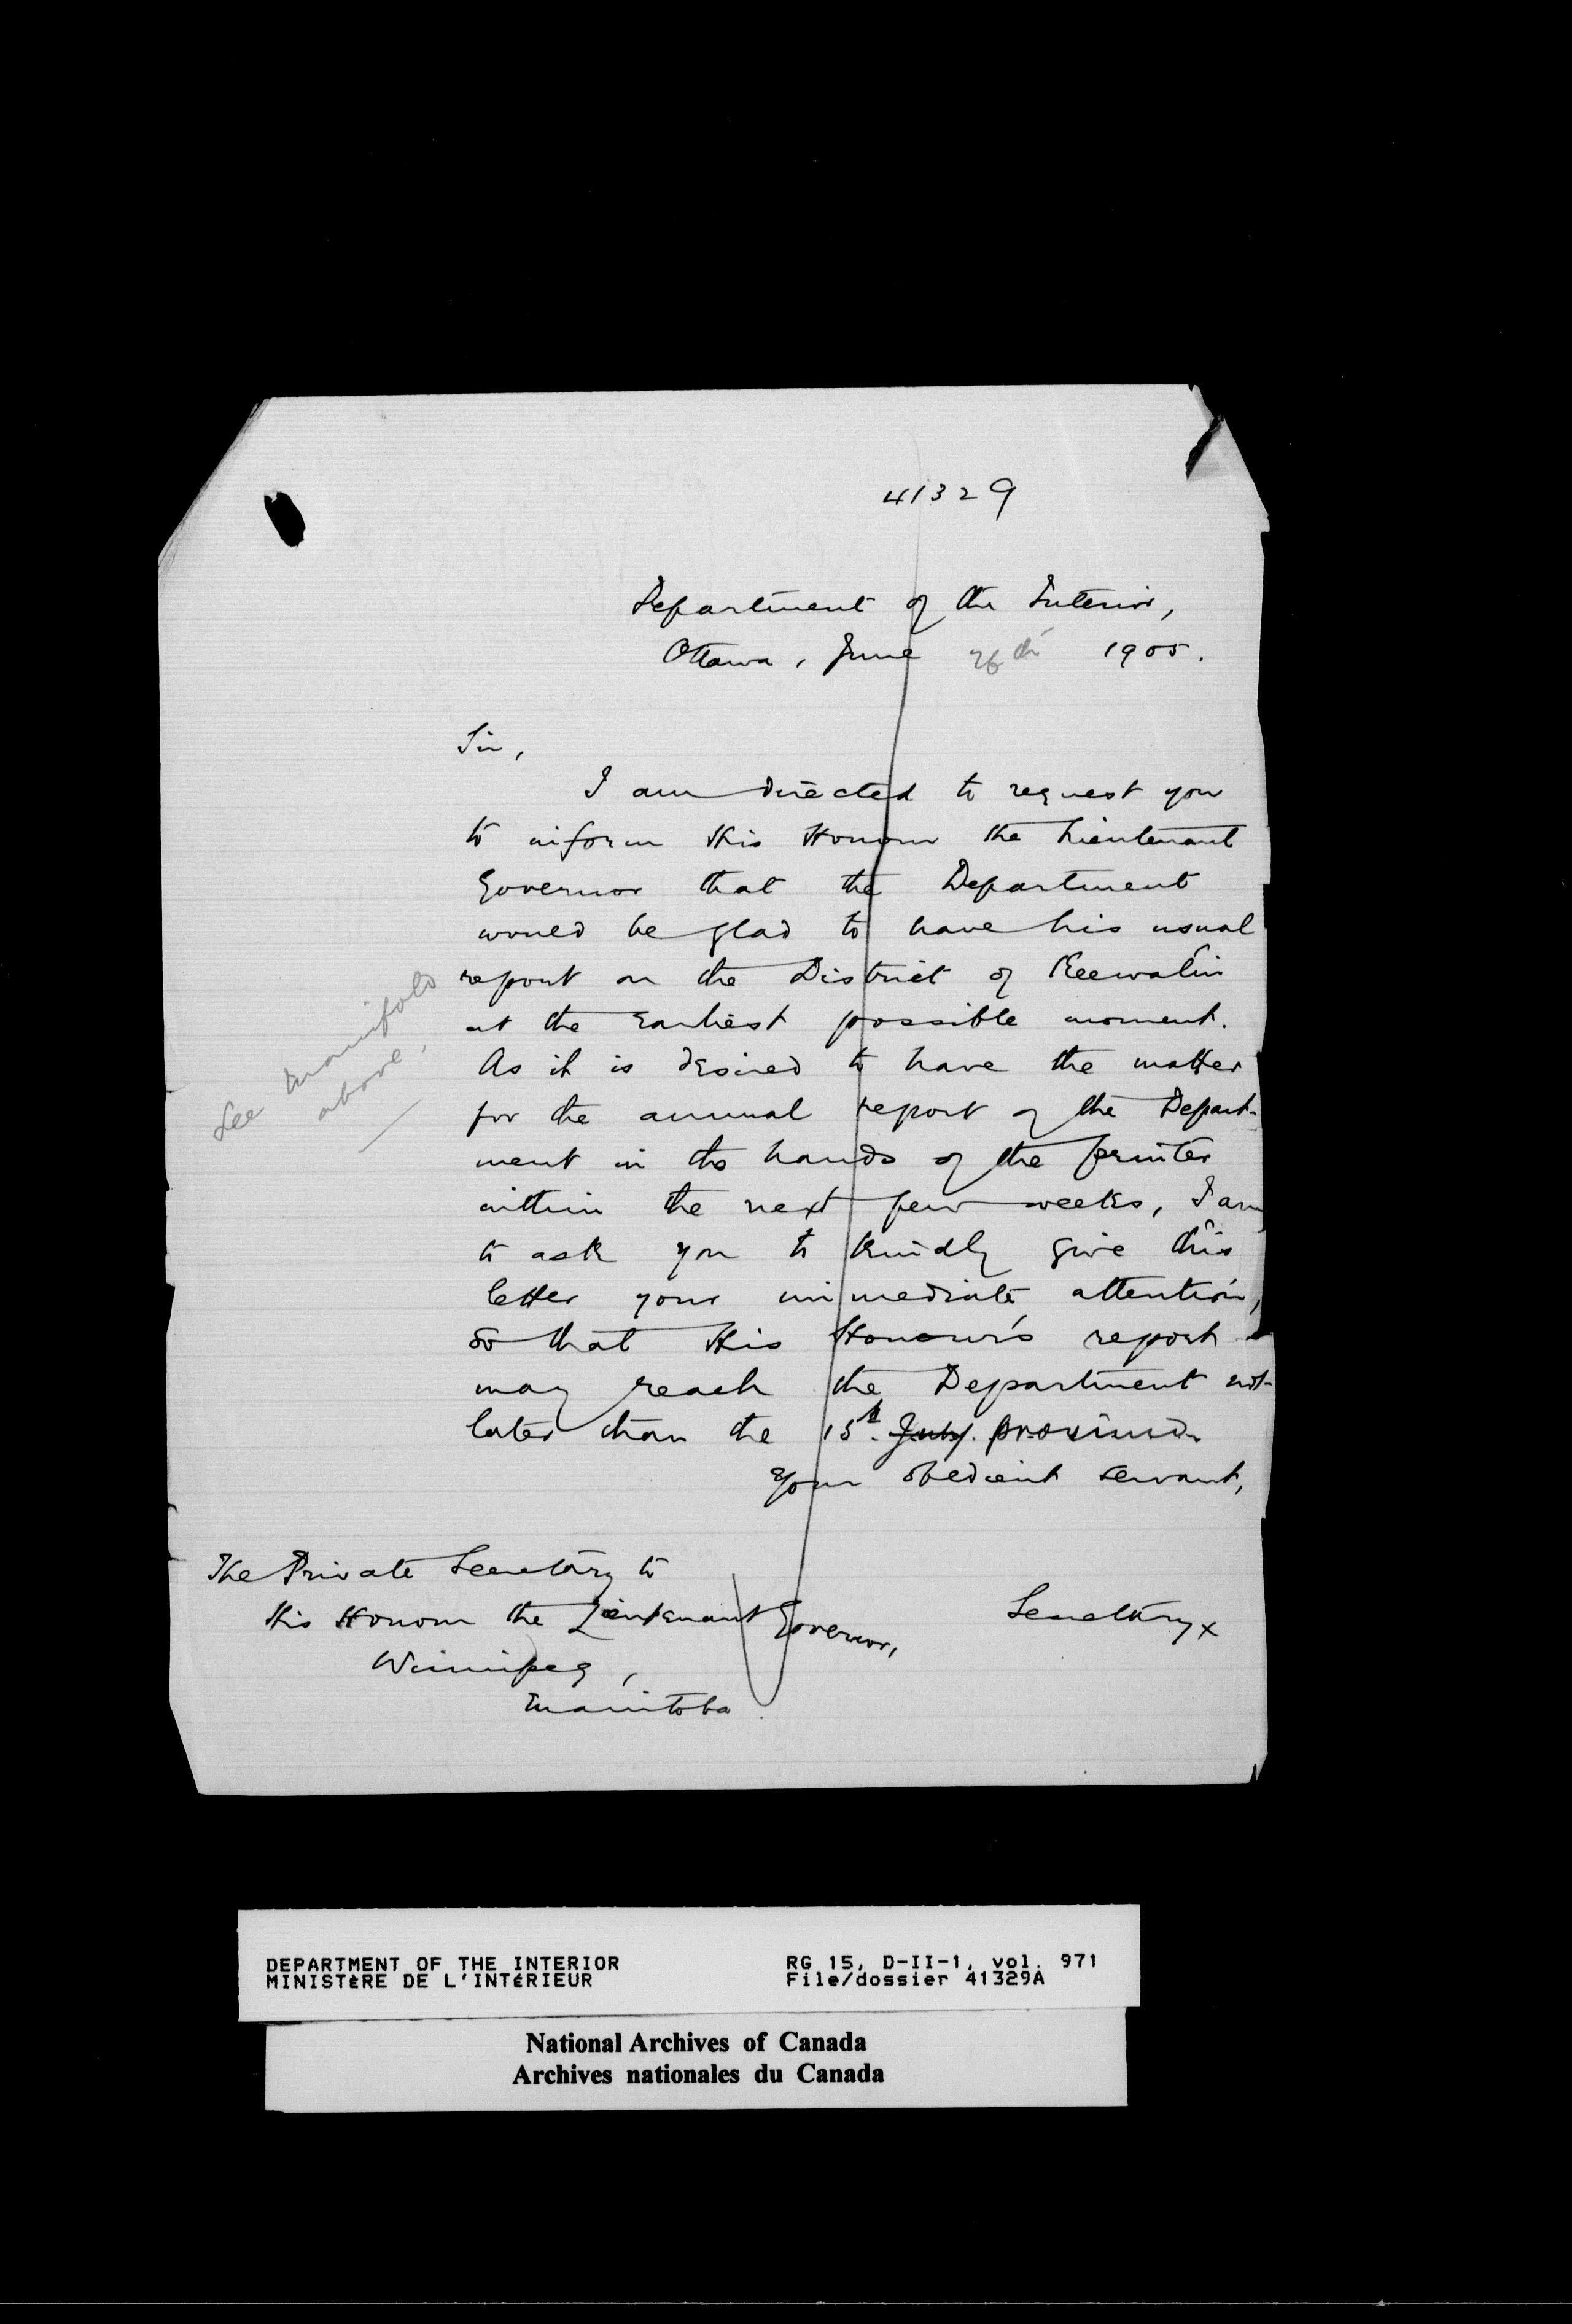 41329
Department of the Interior,
Ottawa, June 26th 1905.
Sir,
I am directed to request you
to inform His Honour the Lieutenant
Governor that the Department
would be glad to have his usual
report on the District of Keewatin
at the earliest possible moment.
As it is desired to have the matter
for the annual report of the Depart-
ment in the hands of the printer
within the next few weeks, I am
to ask you to kindly give this
letter your immediate attention,
so that His Honour's report
may reach the Department not
later than the 15th. July. proximo.
Your obedient servant,
See manifold
above.
The Private Secretary to
His Honour the Lieutenant Governor,
Winnipeg,
Manitoba.
Secretary x
DEPARTMENT OF THE INTERIOR
MINISTÈRE DE L'INTÉRIEUR
RG 15, D-II-1, vol. 971
File/dossier 41329A
National Archives of Canada
Archives nationales du Canada